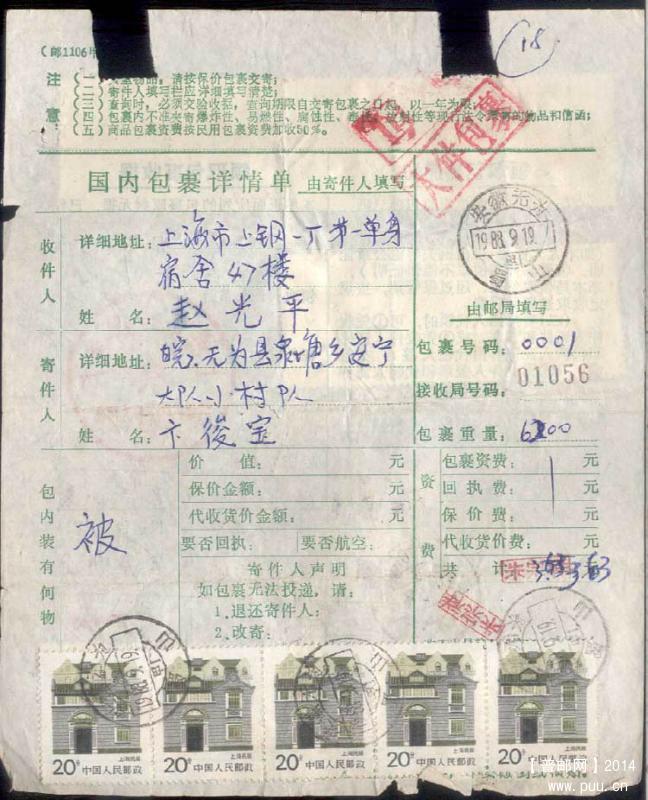 (邮1106
18
注意
(一) 物品,请按保价包裹交寄;
(二)寄件人填写栏应详细填写清楚;
(三)查询时,必须交验收据,查询期限自交寄包裹之日起,以一年为限;
(四)包裹内不准夹寄爆炸性、易燃性、腐蚀性、毒性、放射性等现行法令禁寄的物品和信函;
(五)商品包裹资费按民用包裹资费加收50%。
大件包裹
国内包裹详情单 由寄件人填写
安徽无为
1988.9.19.
收件人
详细地址:上海市上钢一丁第一单身
宿舍47楼
姓名:赵光平
由邮局填写
寄件人
详细地址:皖.无为县泉塘乡定宁
大队小村队
姓名:卞後宝
包裹号码:0001
接收局号码:01056
包裹重量:6200
包内装有何物
被
价值: 元
保价金额: 元
代收货价金额: 元
要否回执: 要否航空:
寄件人声明
如包裹无法投递,请:
1.退还寄件人:
2.改寄:
资费
包裹资费: 元
回执费: 元
保价费: 元
代收货价费: 元
共计: 3.63
上海民居
20分 中国人民邮政
上海民居
20分 中国人民邮政
上海民居
20分 中国人民邮政
上海民居
20分 中国人民邮政
上海民居
20分 中国人民邮政
【普邮网】2014
www.puu.cn